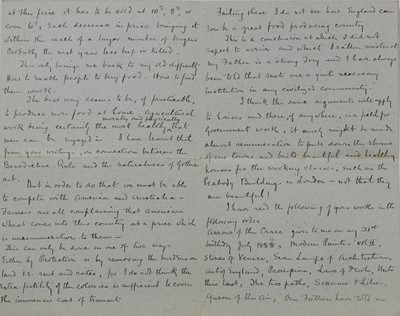 at this price it has to be sold at 10ᵈ, 8ᵈ, or
even 6ᵈ, each decrease in price bringing it
within the reach of a larger number of buyers
Probably the next year less hop is killed.
This only brings me back to my old difficulty
How is small people to buy food. How to find
them work.
The best way seems to be, if practicable,
to produce more food at home. Agricultural
morally and physically
work being certainly the most healthy that
men can be engaged in. I have learned this
from your writings, in connection between the
Benedictine Rule and the naturalness of Gothic
art.
But in order to do that we must be able
to compete with America and Australia.
Farmers are all complaining that American
Wheat comes into this country at a price which
is unremunerative to them.
This can only be done in one of two ways
Either by Protection or by removing the burdens on
land its rent and rates, for I do not think the
extra fertility of the colonies is sufficient to cover
the immense cost of transit
Failing these I do not see how England can
be a great food producing country
This is a conclusion at which I did not
expect to arrive and which I rather mistrust
my Father is a strong Tory and I have always
been told that rents are a quite necessary
institution in any civilized community.
I think the same arguments will apply
to houses and there, if anywhere, is a field for
Government work, it surely might be made
almost remunerative to pull down the slums
of our towns and build beautiful and healthy
houses for the working classes, such as the
Peabody Buildings in London - not that they
are beautiful!
I have read the following of your works in the
following order
Arrows of the Chace given to me on my 21st
birthday July Modern Painters vol II,
Stones of Venice, Seven Lamps of Architecture,
Art of England, Proserpina, Laws of Fesole, Unto
this Last, The two paths, Sesame & Lilies,
Queen of the Air, Our Fathers have told us